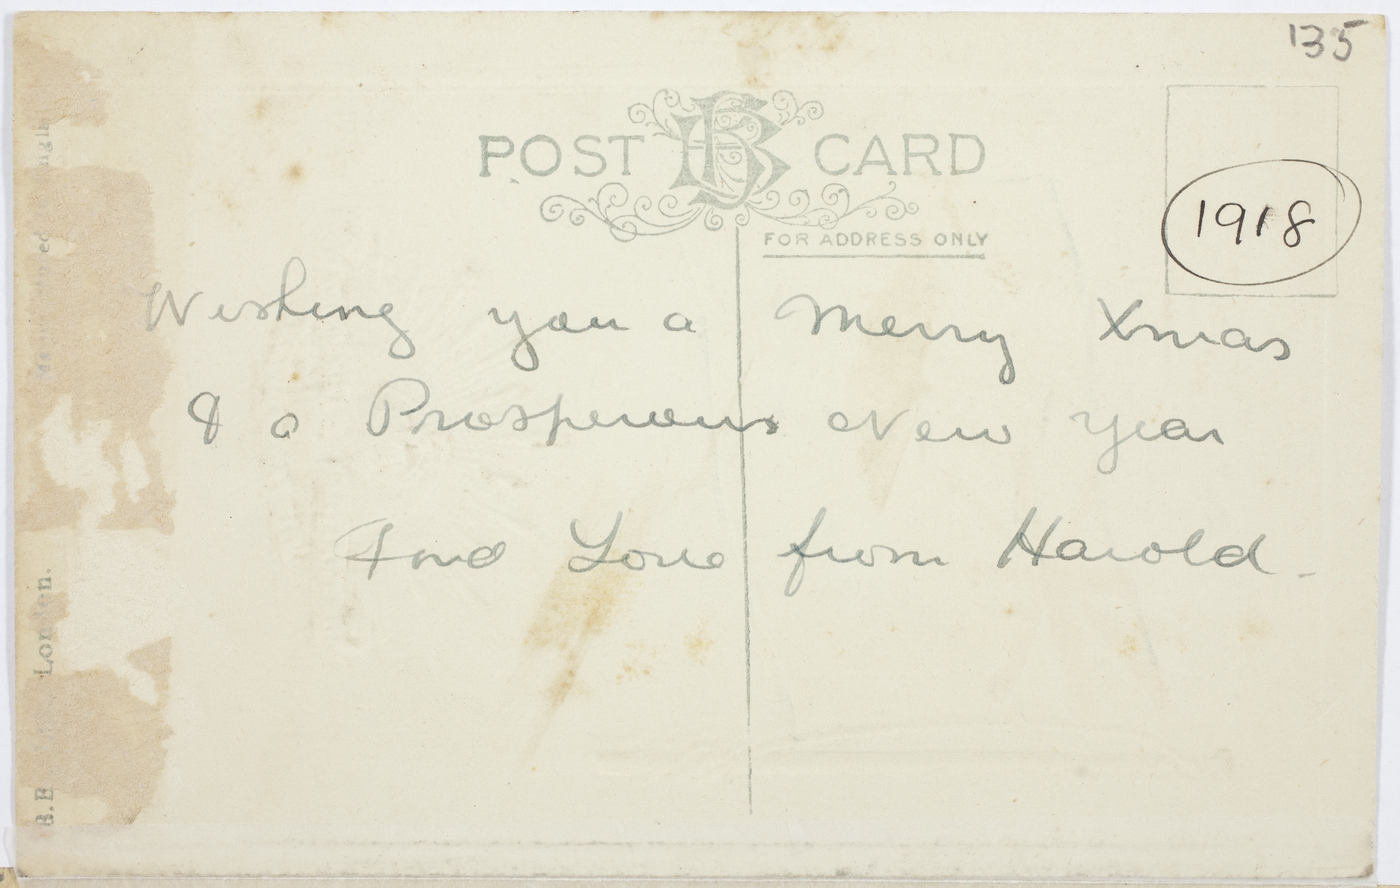 135
POST CARD
FOR ADDRESS ONLY
1918
Wishing you a Merry Xmas
& a Prosperous New Year
Fond Love from Harold.
London.